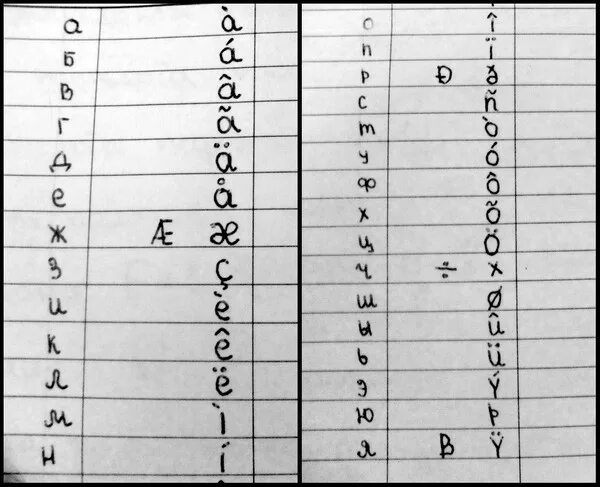 а à
б á
в â
г ã
д ä
е å
ж Æ æ
з ç
и é
к ê
л ë
м í
н í
о î
п ï
р Ð ð
с ñ
т ò
у ó
ф ô
х õ
ц Ö
ч ÷ ×
ш Ø
ы û
ь ü
э Ý
ю Þ
я B Ÿ